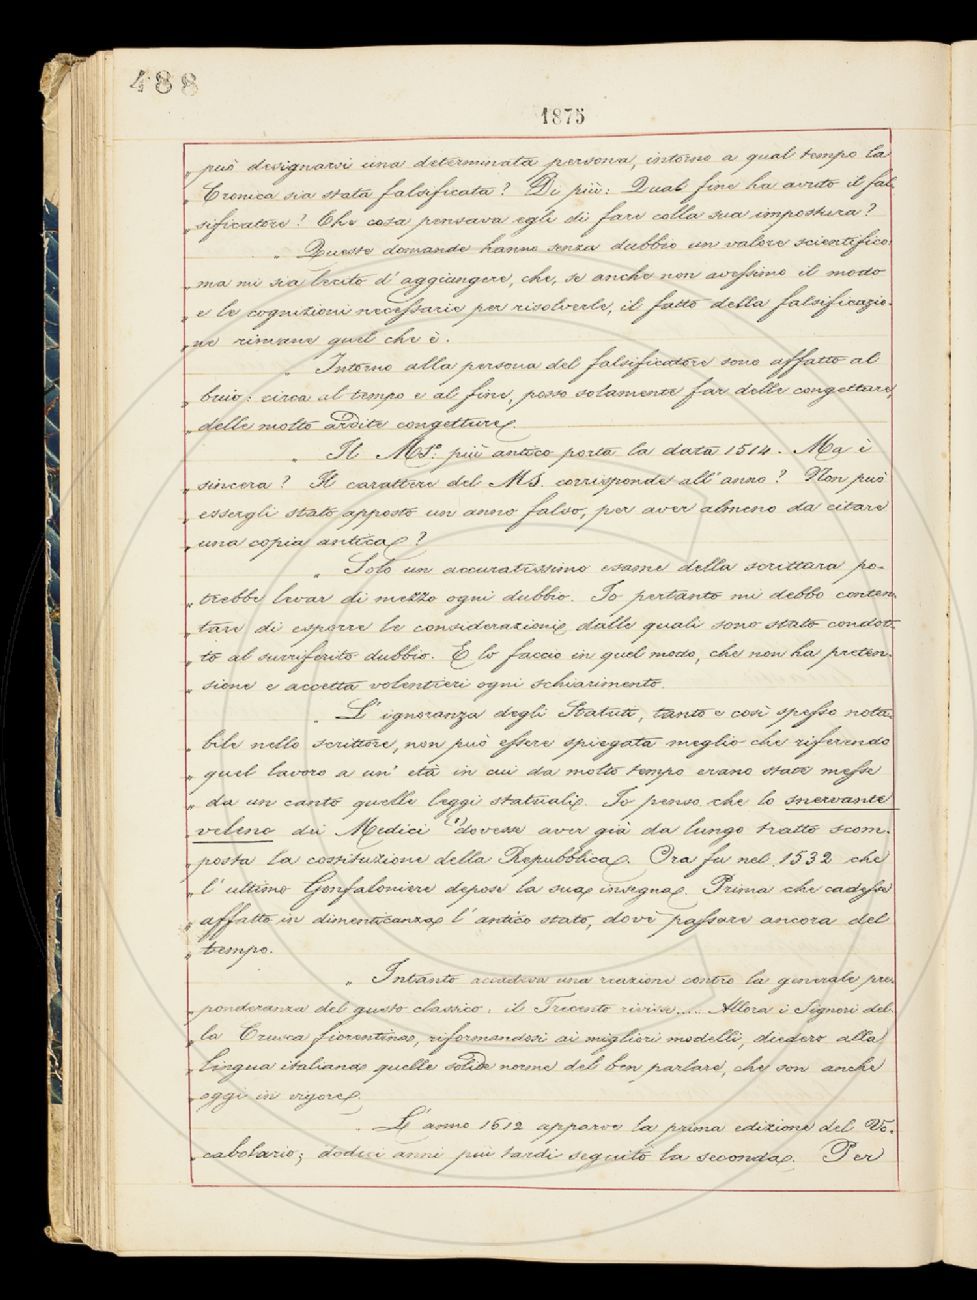 488
1875
„ può designarsi una determinata persona, intorno a qual tempo la
„ Cronica sia stata falsificata? Di più: Qual fine ha avuto il fal-
„ sificatore? Che cosa pensava egli di fare colla sua impostura?
„ Queste domande hanno senza dubbio un valore scientifico:
„ ma mi sia lecito d'aggiungere, che, se anche non avessimo il modo
„ e le cognizioni necessarie per risolverle, il fatto della falsificazio-
„ ne rimane quel che è.
„ Intorno alla persona del falsificatore sono affatto al
„ buio: circa al tempo e al fine, posso solamente far delle congetture,
„ delle molto ardite congetture.
„ Il MS: più antico porta la data 1514. Ma è
„ sincera? Il carattere del MS. corrisponde all'anno? Non può
„ essergli stato apposto un anno falso, per aver almeno da citare
„ una copia antica?
„ Solo un accuratissimo esame della scrittura po-
„ trebbe levar di mezzo ogni dubbio. Io pertanto mi debbo conten-
„ tare di esporre le considerazioni dalle quali sono stato condot-
„ to al surriferito dubbio. E lo faccio in quel modo, che non ha preten-
„ sione e accetta volentieri ogni schiarimento.
„ L'ignoranza degli Statuti, tanto e così spesso nota-
„ bile nello scrittore, non può essere spiegata meglio che riferendo
„ quel lavoro a un'età in cui da molto tempo erano state messe
„ da un canto quelle leggi statuali. Io penso che lo snervante
„ veleno dei Medici dovesse aver già da lungo tratto scom-
„ posta la costituzione della Repubblica. Ora fu nel 1532 che
„ l'ultimo Gonfaloniere depose la sua insegna. Prima che cadesse
„ affatto in dimenticanza l'antico stato, dovè passare ancora del
„ tempo.
„ Intanto accadeva una reazione contro la generale pre-
„ ponderanza del gusto classico: il Trecento rivisse.... Allora i Signori del-
„ la Crusca fiorentina, riformandosi ai migliori modelli, diedero alla
„ lingua italiana quelle solide norme del ben parlare, che son anche
„ oggi in vigore.
„ L'anno 1612 apparve la prima edizione del Vo-
„ cabolario; dodici anni più tardi seguitò la seconda. Per